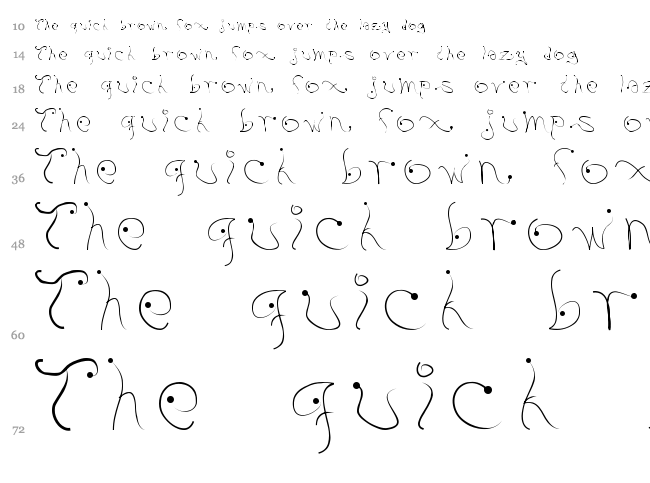 10 The quick brown fox jumps over the lazy dog
14 The quick brown fox jumps over the lazy dog
18 The quick brown fox jumps over the laz
24 The quick brown fox jumps ov
36 The quick brown fox
48 The quick brown
60 The quick br
72 The quick